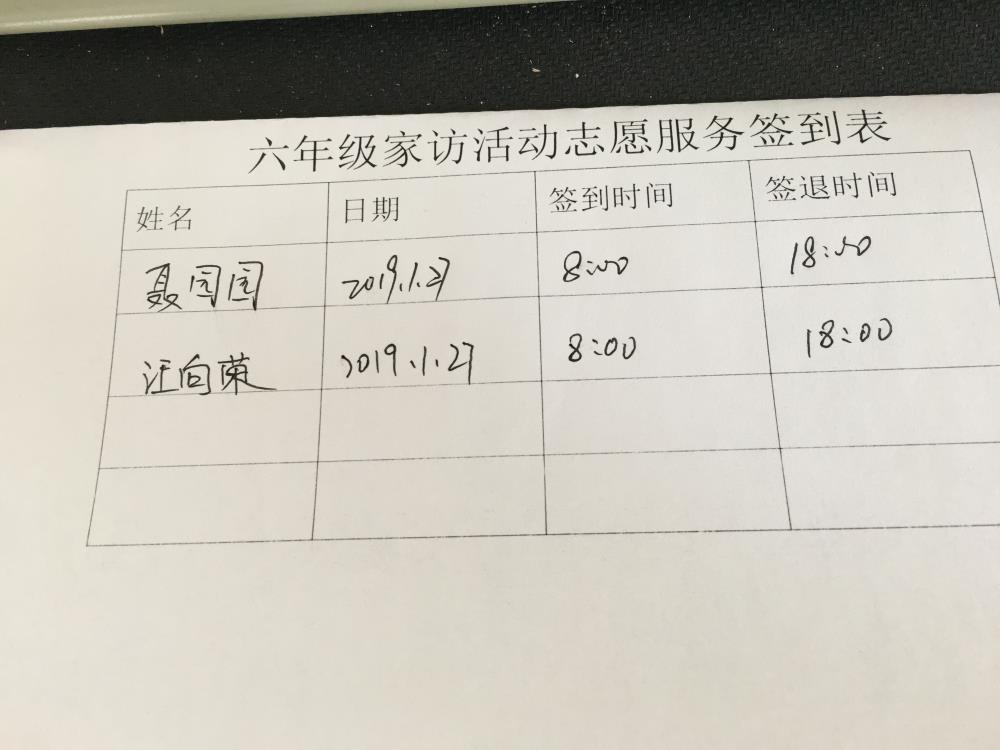 六年级家访活动志愿服务签到表
姓名 日期 签到时间 签退时间
聂园园 2019.1.27 8:00 18:00
汪向荣 2019.1.27 8:00 18:00